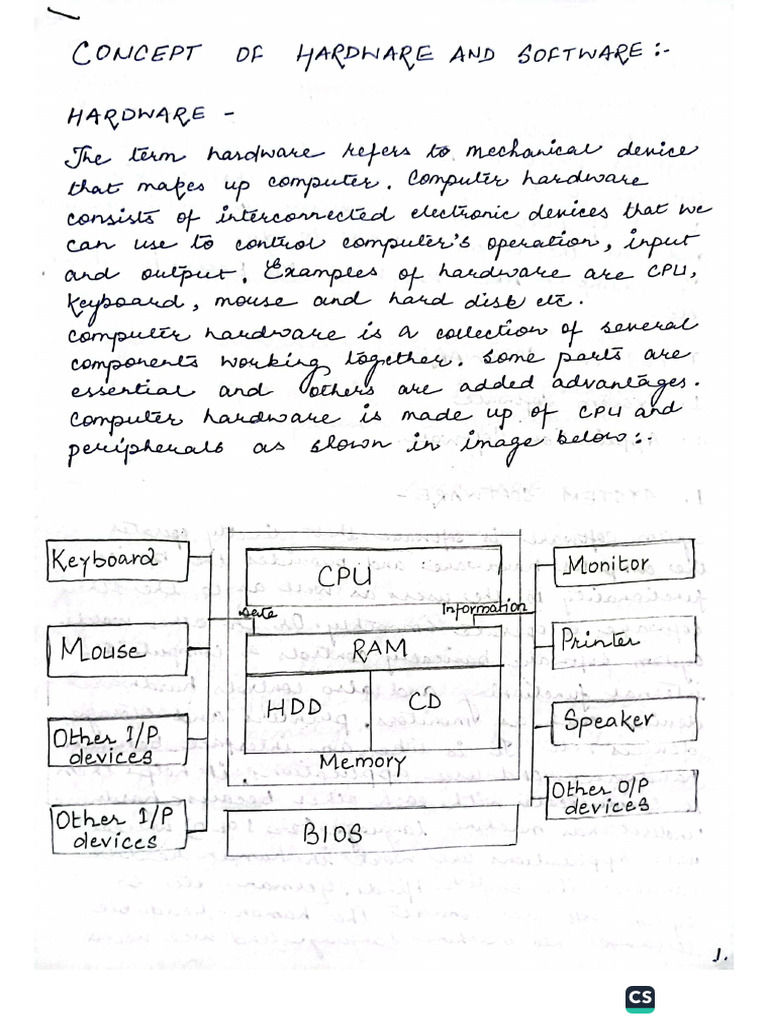 CONCEPT OF HARDWARE AND SOFTWARE :-
HARDWARE -
The term hardware refers to mechanical device
that makes up computer. Computer hardware
consists of interconnected electronic devices that we
can use to control computer's operation, input
and output. Examples of hardware are CPU,
Keyboard, mouse and hard disk etc.
Computer hardware is a collection of several
components working together. Some parts are
essential and others are added advantages.
Computer hardware is made up of CPU and
peripherals as shown in image below:-
Keyboard
CPU
Monitor
Data
Information
Mouse
RAM
Printer
HDD
CD
Speaker
Other I/P
devices
Memory
Other O/P
devices
Other I/P
devices
BIOS
1.
CS